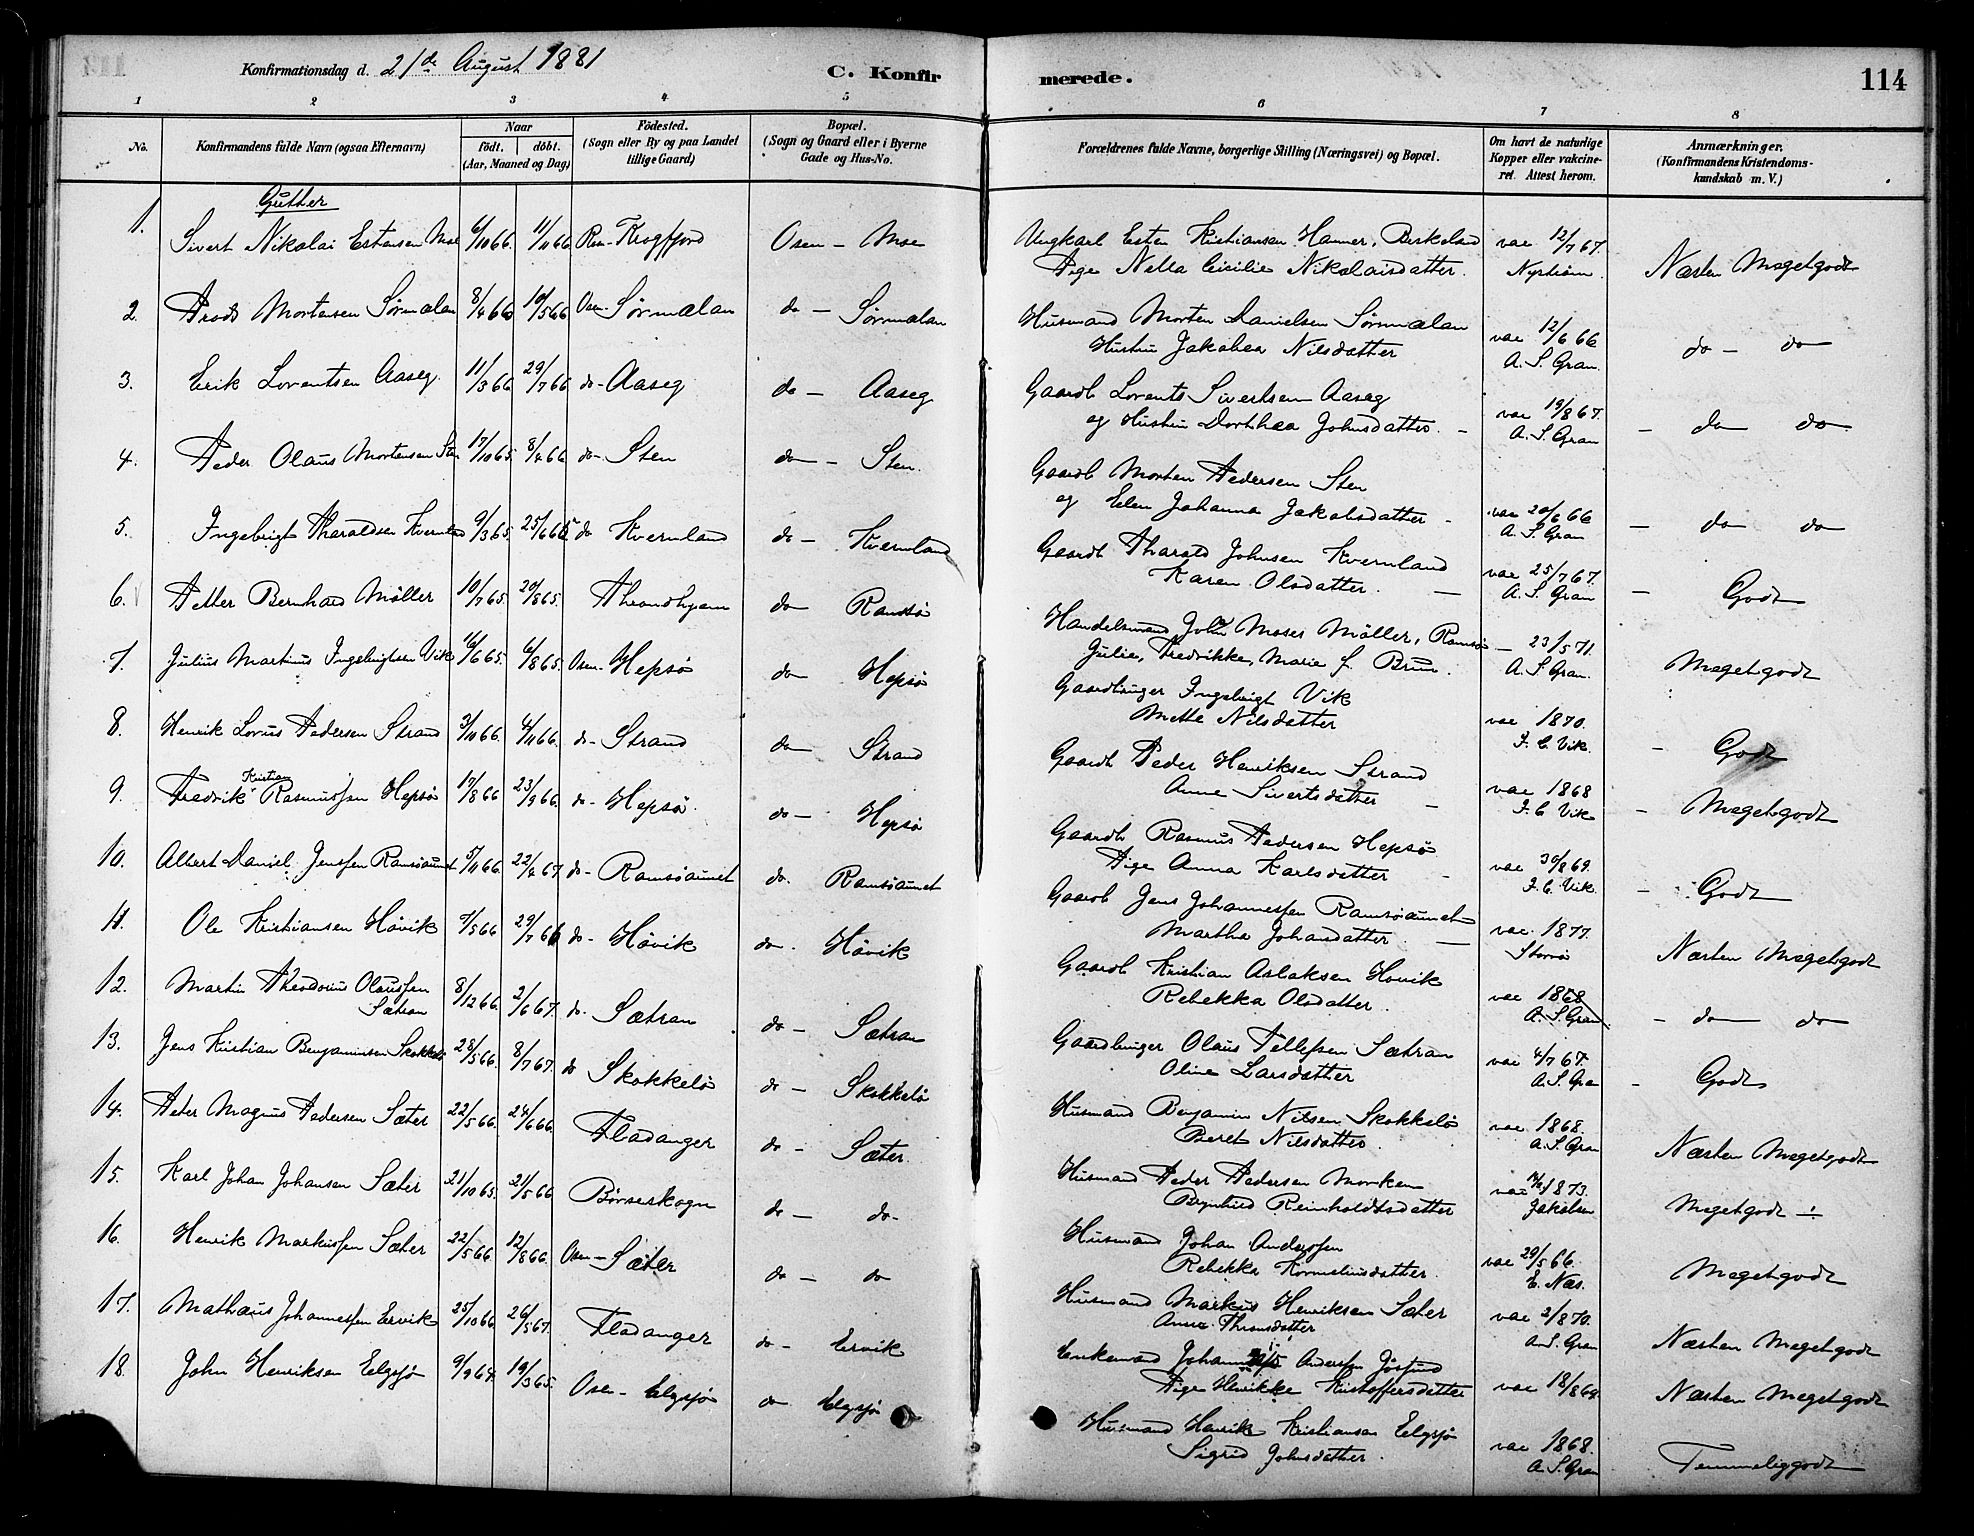 Konfirmationsdag d. 21de August 1881
C. Konfirmerede.
114
1 2 3 4 5 6 7 8
No.
Konfirmandens fulde Navn (ogsaa Efternavn)
Naar
Födt. döbt.
(Aar, Maaned og Dag)
Födested.
(Sogn eller By og paa Landet
tillige Gaard)
Bopæl.
(Sogn og Gaard eller i Byerne
Gade og Hus-No.
Forældrenes fulde Navne, borgerlige Stilling (Næringsvei) og Bopæl.
Om havt de naturlige
Kopper eller vakcine-
ret. Attest herom.
Anmærkninger.
(Konfirmandens Kristendoms-
kundskab m. V.)
Gutter
1. Sivert Nikolai Estensen Moe 6/10 66. 11/11 66 Roan - Krogfjord Osen - Moe
Ungkarl Esten Kristiansen Hammer, Birkeland vac 12/7 67.
Pige Nella Cicilie Nikolaisdatter. Nyström. Næsten Megetgodt
2. Arods Mortensen Sörmælan 8/4 66 10/5 66 Osen. Sörmælan do - Sörmælan
Husmand Morten Danielsen Sörmælan vac 12/6 66
Hustru Jakobea Nilsdatter A. S. Gran. do - do
3. Erik Lorentsen Aaseg. 11/3 66 29/7 66 do - Aaseg do - Aaseg
Gaardb. Lorents Sivertsen Aaseg vac 19/8 67.
og Hustru Dorthea Johnsdatter. - A. S. Gran - do do
4. Peder Olaus Mortensen Sten 17/10 65. 8/4 66 do - Sten do - Sten.
Gaardb Morten Pedersen Sten
og Elen Johanna Jakobsdatter - vac 20/6 66 A. S. Gran - do do
5. Ingebrigt Tharaldsen Kvernland 9/3 65. 25/6 65 do Kvernland do - Kvernland
Gaardb Tharald Johnsen Kvernland vac 25/7 67.
Karen Olsdatter. - A. S. Gran - Godt
6. Petter Bernhard Möller 10/7 65. 20/8 65. Throndhjem do Ramsö
Handelsmand John Moses Möller, Ramsö - 23/5 71.
Julie, Fredrikke, Marie f. Brun. A. S. Gran. Megetgodt
7. Julius Martinus Ingebrigtsen Vik 16/6 65. 6/8 65. Osen - Hepsö do Hepsö
Gaardbruger Ingebrigt Vik
Mette Nilsdatter vac 1870. J. C. Vik. - Godt
8. Henrik Lorius Pedersen Strand 3/10 66. 4/11 66. do - Strand do Strand
Gaardb Peder Henriksen Strand vac 1868
Anne Sivertsdatter - J. C. Vik - Megetgodt
9. Fredrik Kristian Rasmussen Hepsö 17/8 66 23/9 66. do - Hepsö. do - Hepsö
Gaardb Rasmus Pedersen Hepsö vac 30/8 69.
Pige Anna Karlsdatter - J. C. Vik. - Godt
10. Albert Daniel Jenssen Ramsöaunet 5/11 66. 22/4 67 do - Ramsöaunet do. Ramsöaunet
Gaardb Jens Johannessen Ramsöaunet vac. 1877.
Martha Johansdatter. - Næsten Megetgodt
11. Ole Kristiansen Hövik 9/5 66 29/7 66 do - Hövik do. Hövik
Gaardb Kristian Aslaksen Hövik vac 1868
Rebekka Olsdatter. A. S. Gran - do do
12. Martin Theodorius Olaussen
Sætran 8/12 66. 2/6 67. do. Sætran do - Sætran
Gaardbruger Olaus Tellefsen Sætran vac 4/7 67.
Oline Larsdatter A. S. Gra - Godt
13. Jens Kristian Benjaminsen Skokkelö 28/5 66. 8/7 67. do Skokkelö do - Skokkelö
Husmand Benjamin Nilsen Skokkelö vac 1868.
Beret Nilsdatter. A. S. Gran Næsten Megetgodt
14. Peter Magnus Pedersen Sæter 22/5 66. 24/6 66. Fladanger do - Sæter.
Husmand Peder Pedersen Morken vac 1873.
Brynhild Reinholdtsdatter Jakobsen Megetgodt ÷
15. Karl Johan Johansen Sæter 21/10 65. 21/5 66 Börseskogn do - do -
Husmand Johan Anderssen
Rebekka Korneliusdatter. vac 29/5 66. E. Næs. Megetgodt
16. Henrik Markussen Sæter 22/5 66. 12/8 66. Osen - Sæter do - do
Husmand Markus Henriksen Sæter vac 2/8 70.
Anne Thronsdatter A. S. Gran Næsten Megetgodt
17. Mathæus Johannessen Ervik 25/10 66. 26/5 67. Fladanger do - Ervik
Enkemand Johannes Anderssen Jössund
Pige Henrikke Kristoffersdatter vac 18/8 69. Næsten Megetgodt
18. John Henriksen Elgsjö 9/9 64. 19/3 65. Osen - Elgsjö do Elgsjö
Husmand Henrik Kristiansen Elgsjö vac 1868.
Sigrid Johnsdatter. A. S. Gran Temmeliggodt